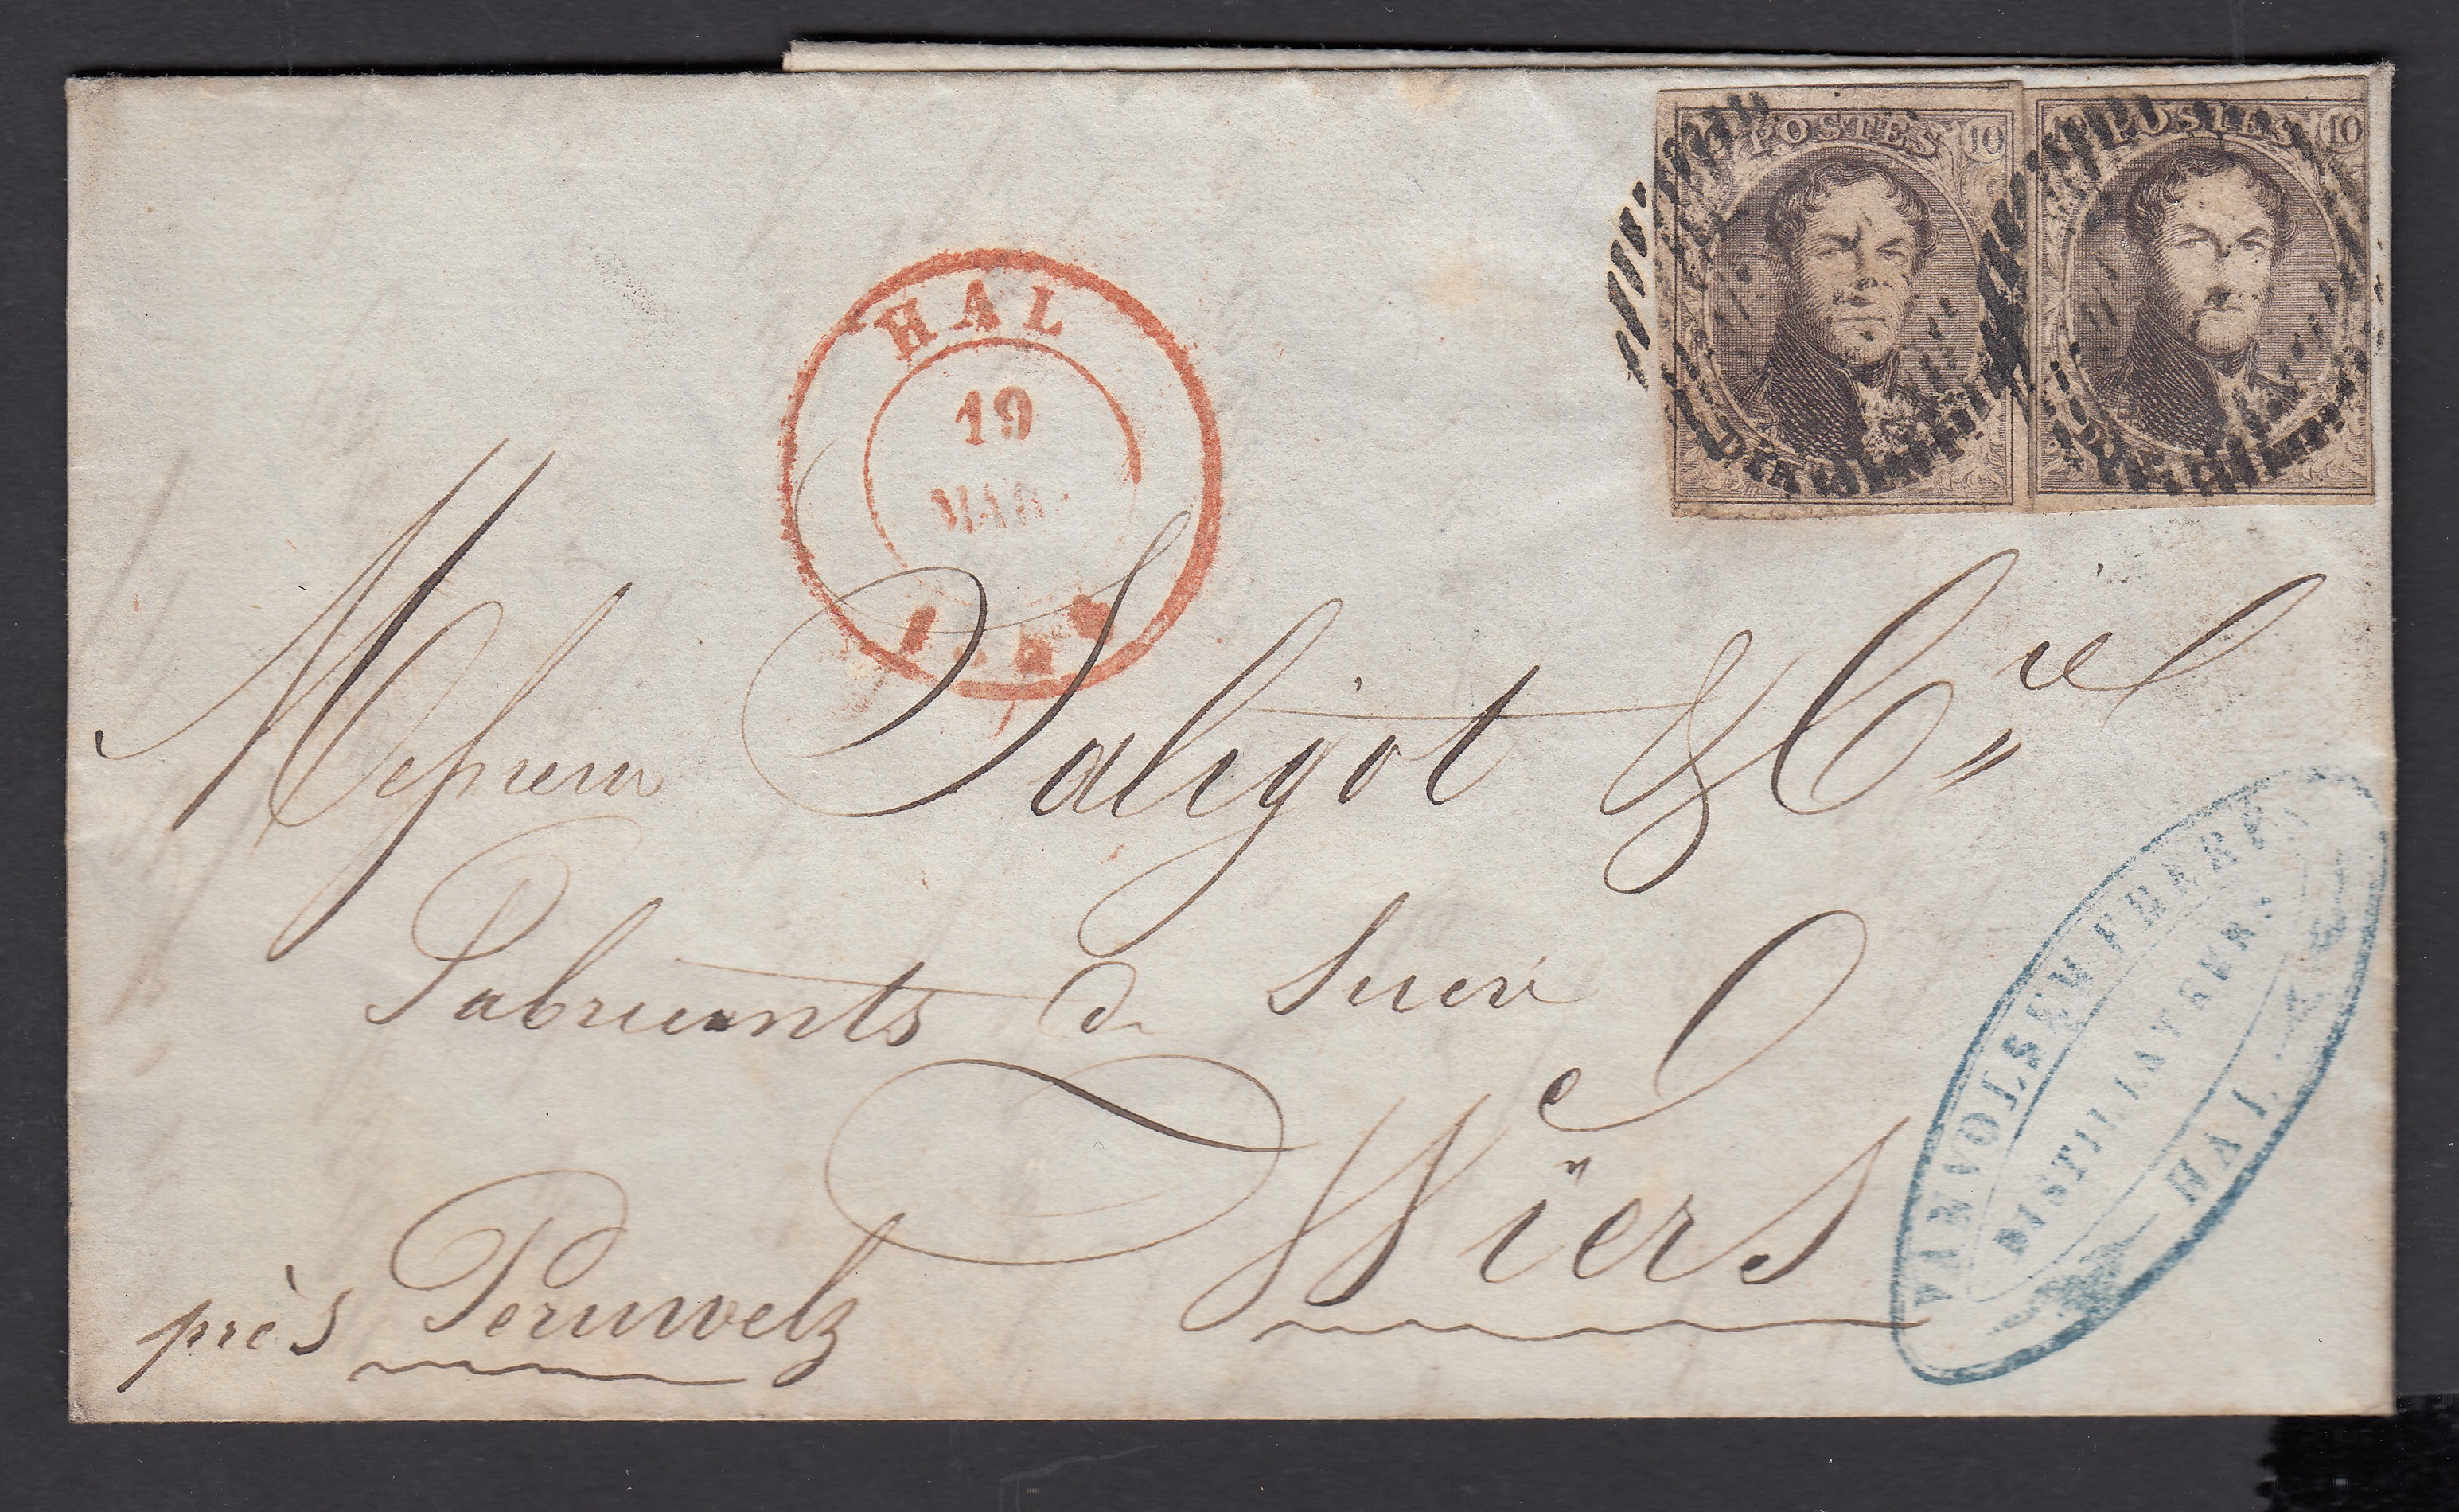 POSTES 10
POSTES 10
HAL
19
MAR.
Messieurs Daligot & Cie
Fabricants de Sucre
e
Wiers
près Peruwelz
DISTILLATEURS
HAL